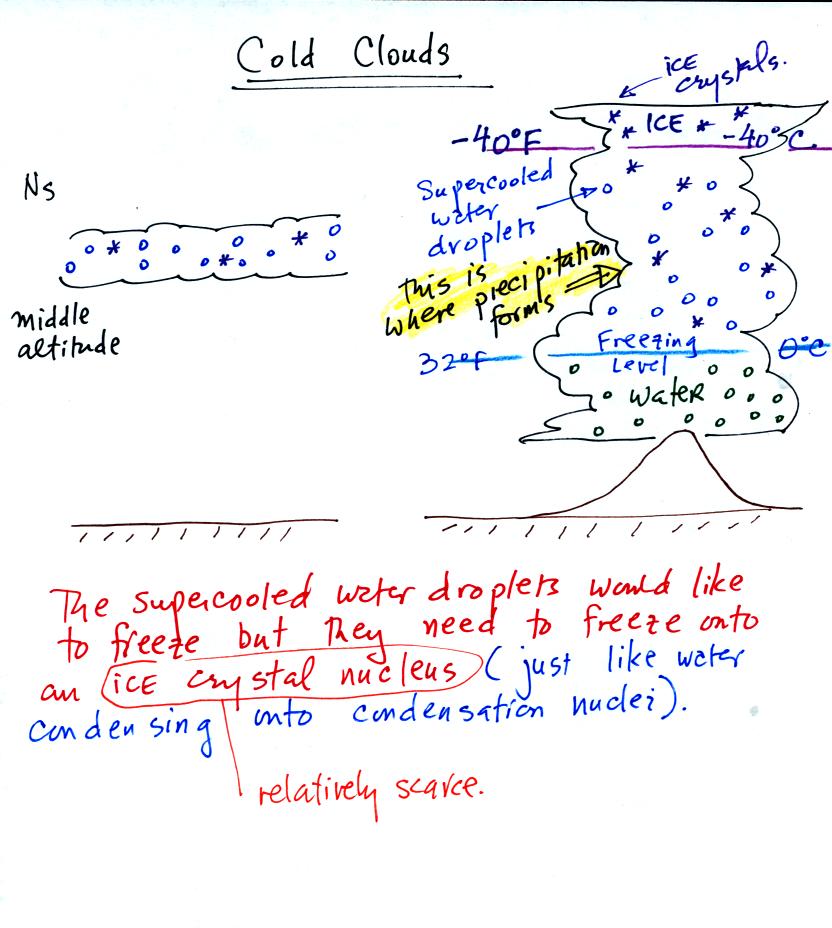 Cold Clouds
ice
crystals.
* ICE *
-40°F
-40°C
Ns
Supercooled
water
droplets
this is
where precipitation
forms
middle
altitude
Freezing
Level
32°F
0°C
water
The supercooled water droplets would like
to freeze but they need to freeze onto
an ice crystal nucleus (just like water
condensing onto condensation nuclei).
relatively scarce.